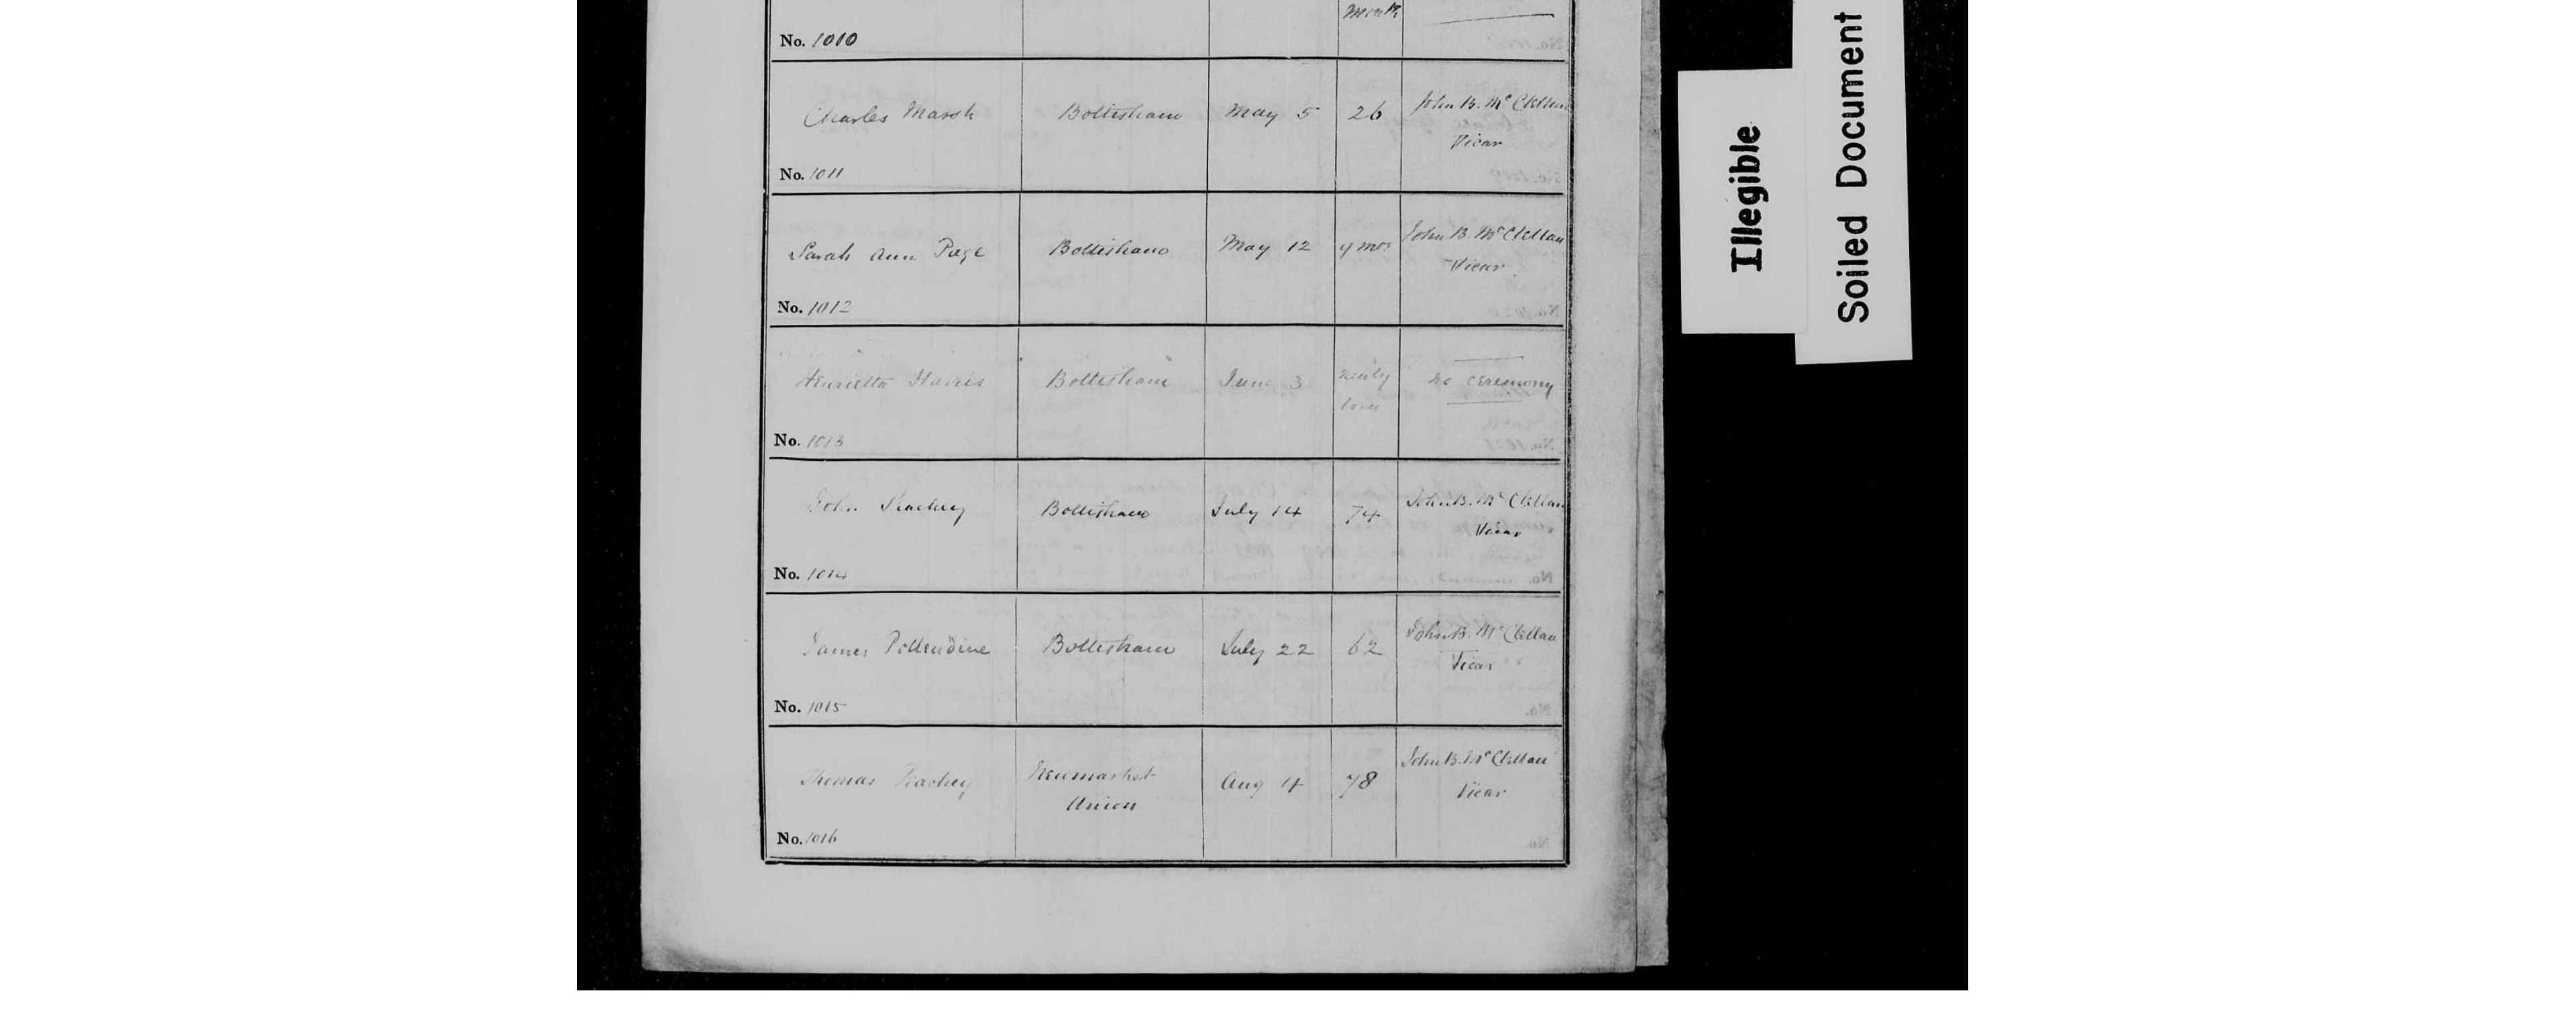 Month
No. 1010
Charles Marsh Bottisham May 5 26 John B. McClellan
Vicar
No. 1011
Sarah Ann Page Bottisham May 12 9 mos John B. McClellan
Vicar
No. 1012
Henrietta Harris Bottisham June 3 newly born no ceremony
No. 1013
John Peachey Bottisham July 14 74 John B. McClellan
Vicar
No. 1014
James Pettendine Bottisham July 22 62 John B. McClellan
Vicar
No. 1015
Thomas Peachey Newmarket Union Aug 4 78 John B. McClellan
Vicar
No. 1016
Illegible
Soiled Document